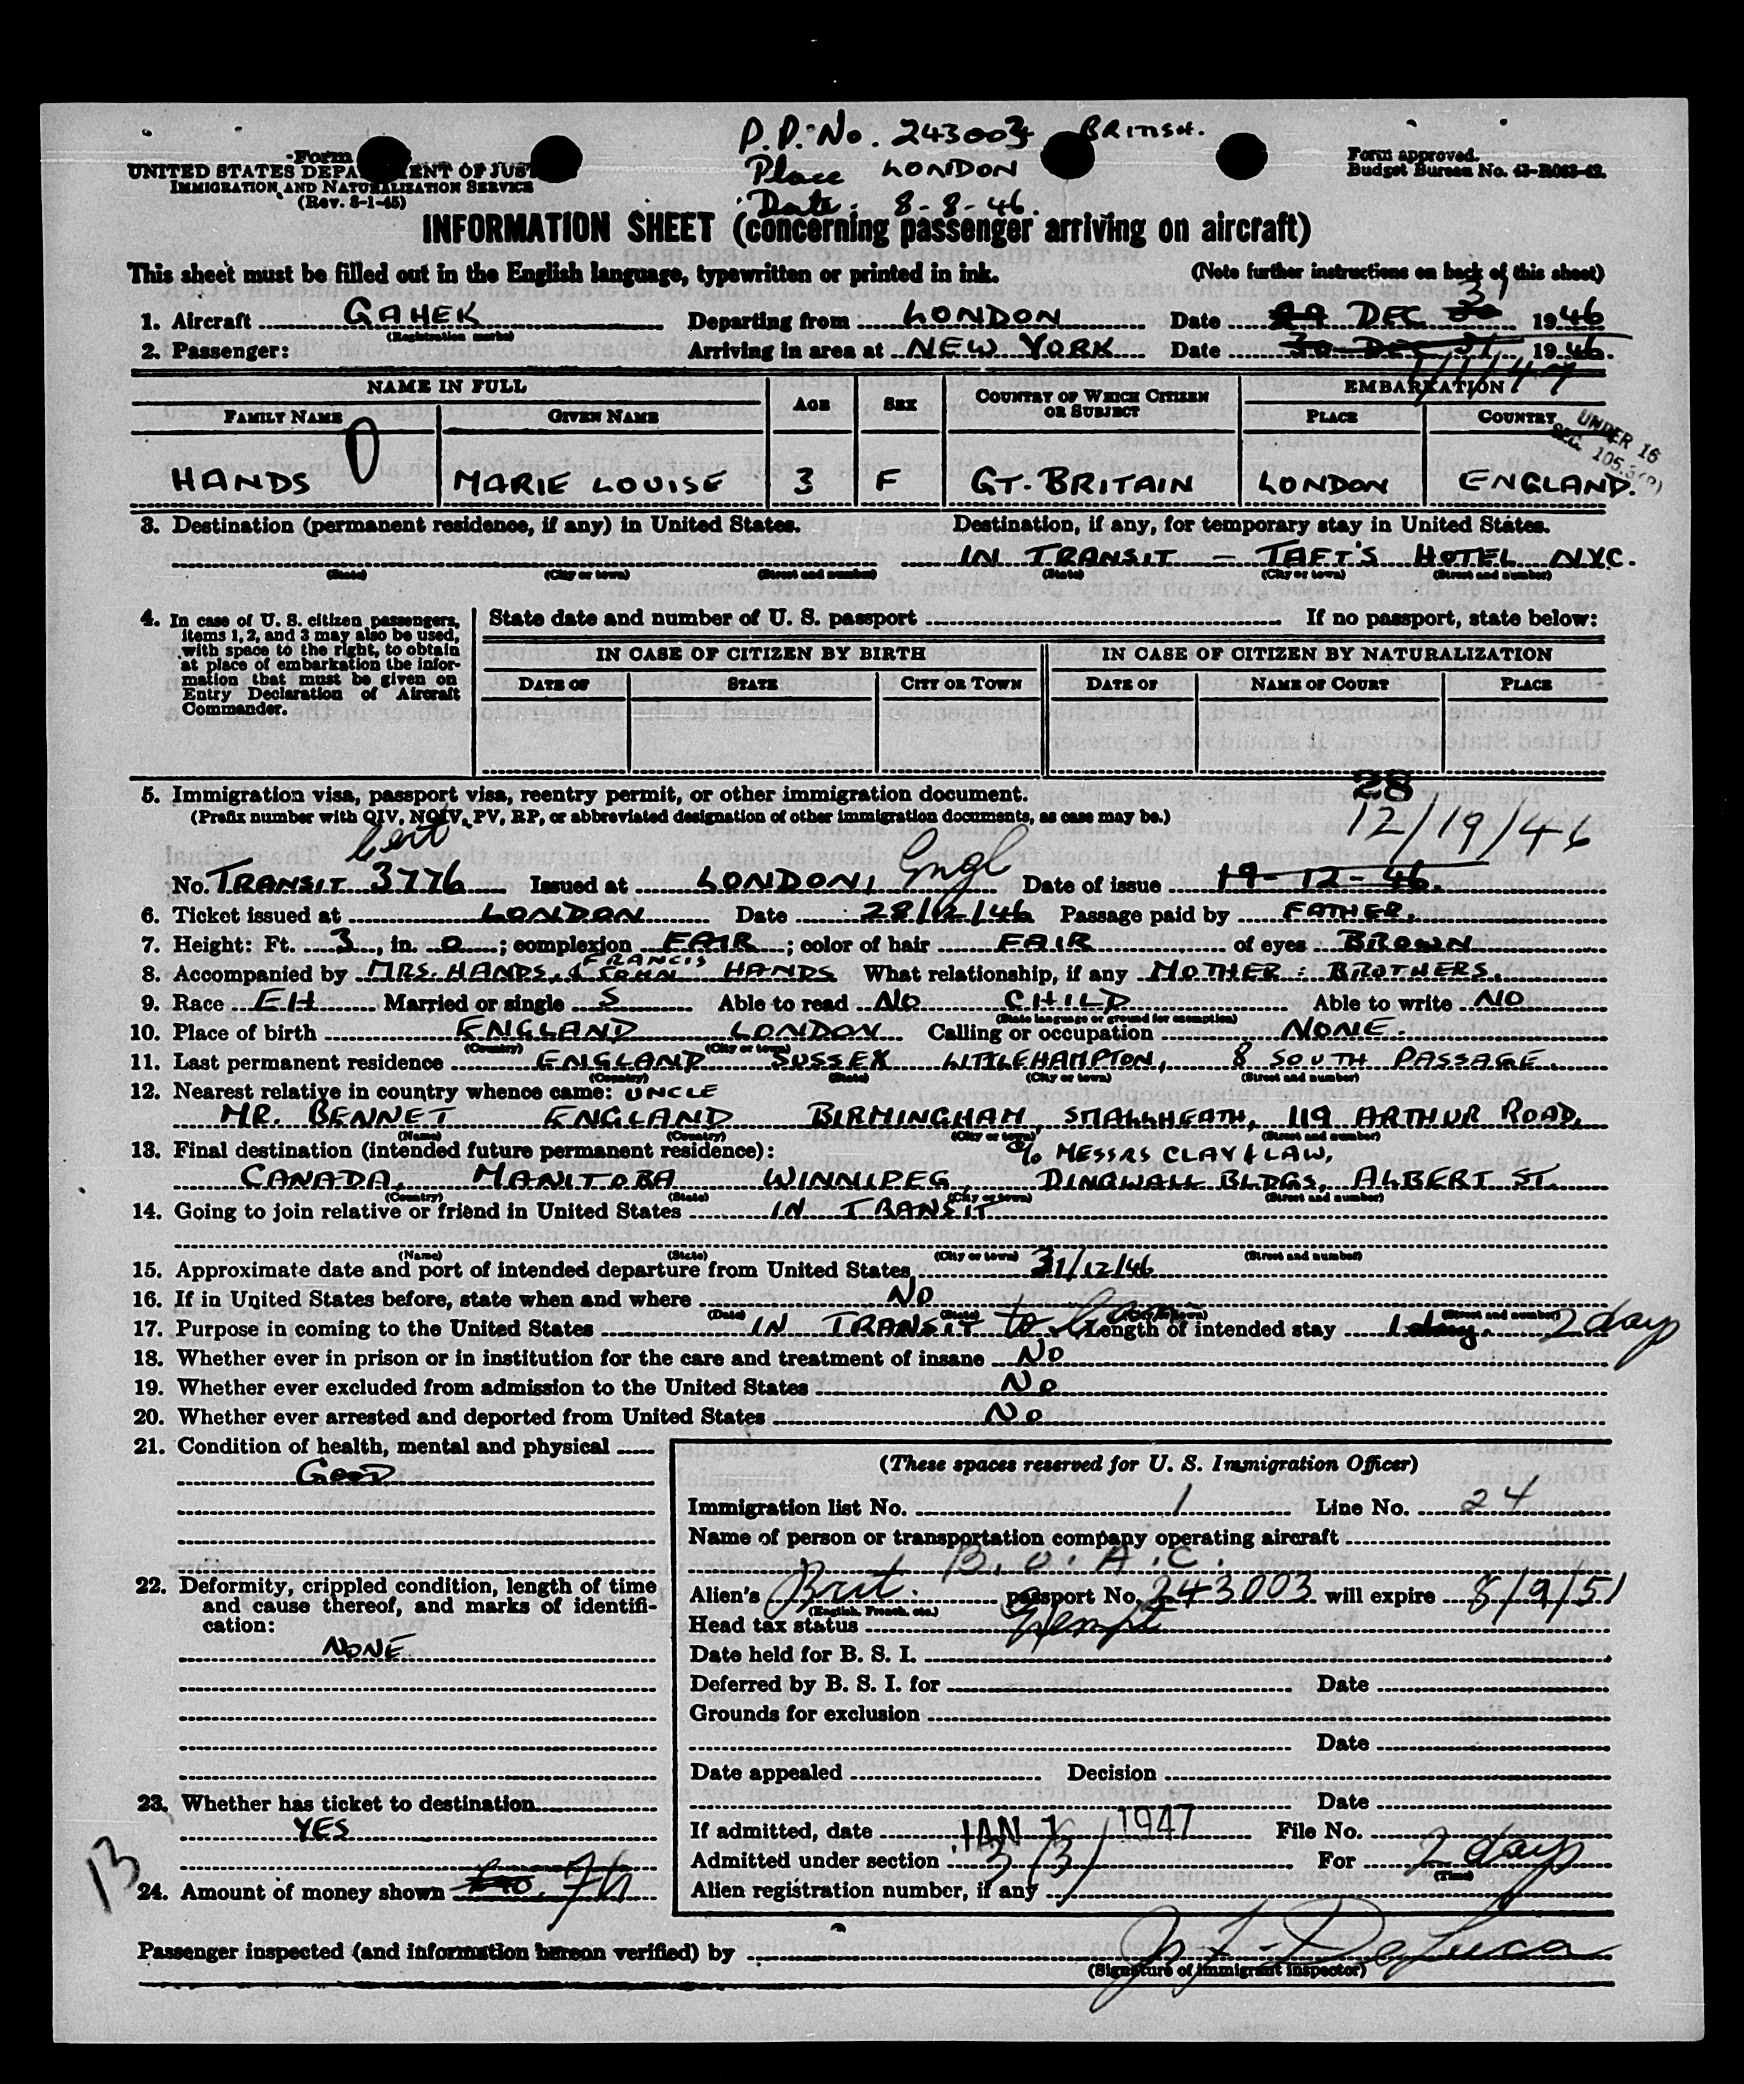 P.P. No. 243003 BRITISH.
Place LONDON
Date. 8-8-46.
Form
UNITED STATES DEPA ENT OF JUST
IMMIGRATION AND NATURALIZATION SERVICE
(Rev. 8-1-45)
Form approved.
Budget Bureau No. 43-R063-42.
INFORMATION SHEET (concerning passenger arriving on aircraft)
This sheet must be filled out in the English language, typewritten or printed in ink. (Note further instructions on back of this sheet)
31
1. Aircraft GAHEK Departing from LONDON Date 29 DEC 30 1946
(Registration marks)
2. Passenger: Arriving in area at NEW YORK Date 30 DEC 31 1946.
1/1/47
NAME IN FULL AGE SEX COUNTRY OF WHICH CITIZEN OR SUBJECT EMBARKATION
FAMILY NAME GIVEN NAME PLACE COUNTRY
UNDER 16
SEC. 105.3
HANDS MARIE LOUISE 3 F GT. BRITAIN LONDON ENGLAND.
3. Destination (permanent residence, if any) in United States. Destination, if any, for temporary stay in United States.
IN TRANSIT – TAFT'S HOTEL NYC.
(State) (City or town) (Street and number) (State) (City or town) (Street and number)
4. In case of U. S. citizen passengers, items 1, 2, and 3 may also be used, with space to the right, to obtain at place of embarkation the information that must be given on Entry Declaration of Aircraft Commander.
State date and number of U. S. passport If no passport, state below:
IN CASE OF CITIZEN BY BIRTH IN CASE OF CITIZEN BY NATURALIZATION
DATE OF STATE CITY OR TOWN DATE OF NAME OF COURT PLACE
28
5. Immigration visa, passport visa, reentry permit, or other immigration document.
(Prefix number with QIV, NQIV, PV, RP, or abbreviated designation of other immigration documents, as case may be.)
12/19/46
Cert
No. TRANSIT 3776 Issued at LONDON, Engl Date of issue 19-12-46.
6. Ticket issued at LONDON Date 28/12/46 Passage paid by FATHER.
7. Height: Ft. 3, in. 0; complexion FAIR; color of hair FAIR of eyes BROWN
FRANCIS
8. Accompanied by MRS. HANDS, & JOHN HANDS What relationship, if any MOTHER: BROTHERS.
9. Race EH Married or single S Able to read NO CHILD Able to write NO
(State language or ground for exemption)
10. Place of birth ENGLAND LONDON Calling or occupation NONE.
(Country) (City or town)
11. Last permanent residence ENGLAND SUSSEX LITTLEHAMPTON, 8 SOUTH PASSAGE.
(Country) (State) (City or town) (Street and number)
12. Nearest relative in country whence came: UNCLE
MR. BENNET ENGLAND BIRMINGHAM, SMALLHEATH, 119 ARTHUR ROAD,
(Name) (Country) (City or town) (Street and number)
13. Final destination (intended future permanent residence): c/o MESSRS CLAY & LAW,
CANADA, MANITOBA WINNIPEG, DINGWALL BLDGS, ALBERT ST.
(Country) (State) (City or town) (Street and number)
14. Going to join relative or friend in United States IN TRANSIT
(Name) (State) (City or town) (Street and number)
15. Approximate date and port of intended departure from United States 31/12/46
16. If in United States before, state when and where NO
(Date) (State) (City or town) (Street and number)
17. Purpose in coming to the United States IN TRANSIT to Can Length of intended stay 1 day. 2 days
18. Whether ever in prison or in institution for the care and treatment of insane NO
19. Whether ever excluded from admission to the United States NO
20. Whether ever arrested and deported from United States NO
21. Condition of health, mental and physical
GOOD
22. Deformity, crippled condition, length of time and cause thereof, and marks of identification:
NONE
23. Whether has ticket to destination
YES
13
24. Amount of money shown
(These spaces reserved for U. S. Immigration Officer)
Immigration list No. 1 Line No. 24
Name of person or transportation company operating aircraft
B.O.A.C.
Alien's Brit. passport No. 243003 will expire 8/9/51
(English, French, etc.)
Head tax status Exempt
Date held for B. S. I.
Deferred by B. S. I. for Date
Grounds for exclusion
Date
Date appealed Decision
Date
If admitted, date JAN 1 1947 File No.
Admitted under section 3(3) For 2 days
(Time)
Alien registration number, if any
Passenger inspected (and information hereon verified) by
(Signature of immigrant inspector)